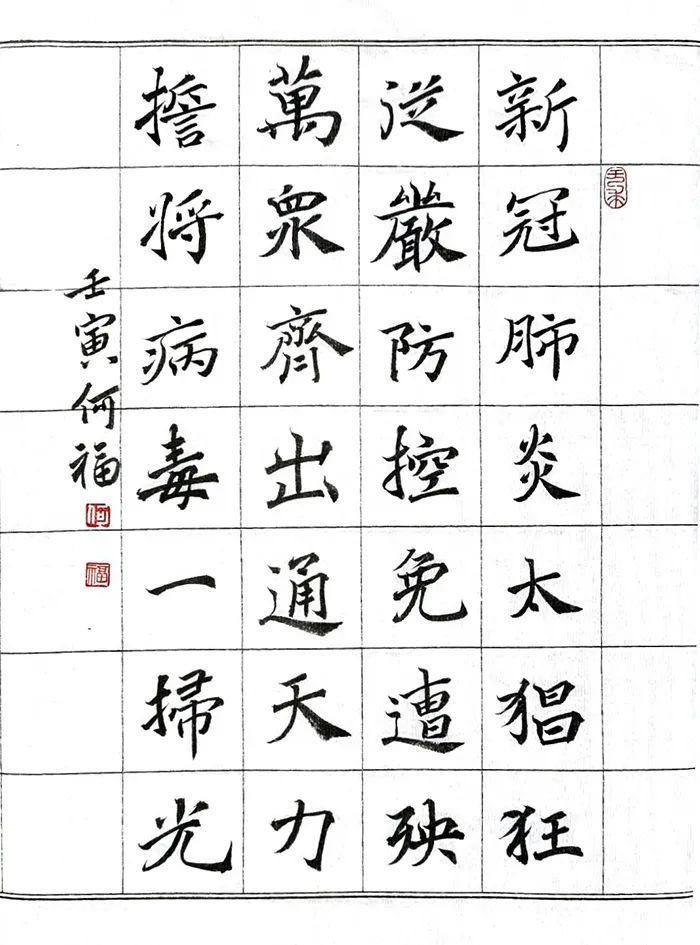 新冠肺炎太猖狂
從嚴防控免遭殃
萬衆齊出通天力
誓将病毒一掃光
壬寅何福
何
福